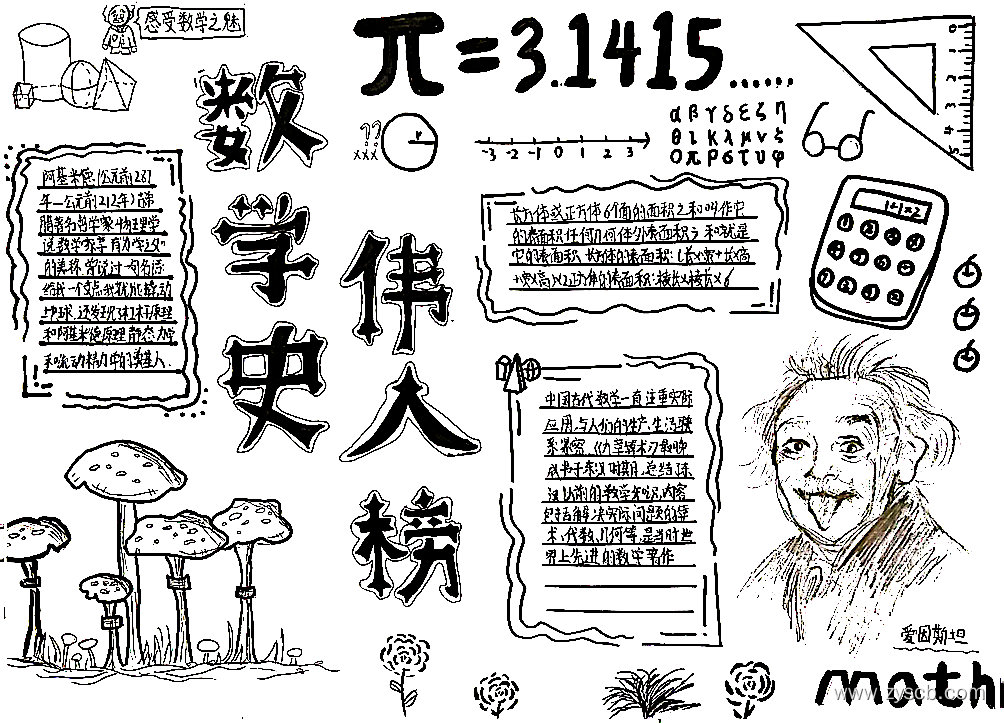 感受数学之魅
π=3.1415......
数学史
伟人榜
αβγδεζη
θικλμνξ
οπρστυφ
-3 -2 -1 0 1 2 3
0 1 2 3 4 5
1+1=2
阿基米德(公元前287
年—公元前212年)古希
腊著名哲学家、物理学
家、数学家享有力学之父"
的美称,曾说过一句名言:
给我一个支点我就能撬动
地球.还发现杠杆原理
和阿基米德原理.静态力学
和流动精力中的奠基人.
长方体或正方体6个面的面积之和叫作它
的表面积任何几何体外表面积之和就是
它的表面积.长方体的表面积:(长x宽+长x高
+宽x高)x2正方体的表面积:棱长x棱长x6
中国古代数学一直注重实际
应用,与人们的生产、生活联
系紧密.《九章算术》最晚
成书于东汉时期,总结了东
汉以前的数学知识,内容
包括解决实际问题的算
术、代数、几何等,是当时世
界上先进的数学著作
爱因斯坦
math
www.zyscb.com